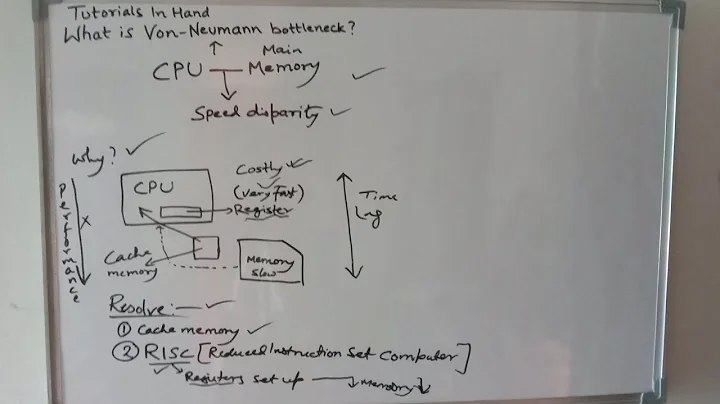 Tutorials In Hand
What is Von-Neumann bottleneck?
CPU Main Memory
Speed disparity
Why?
Performance
CPU
Costly
(very fast)
Register
Time Lag
Cache memory
Memory slow
Resolve:-
① Cache memory
② RISC [Reduced Instruction Set Computer]
Registers set up Memory